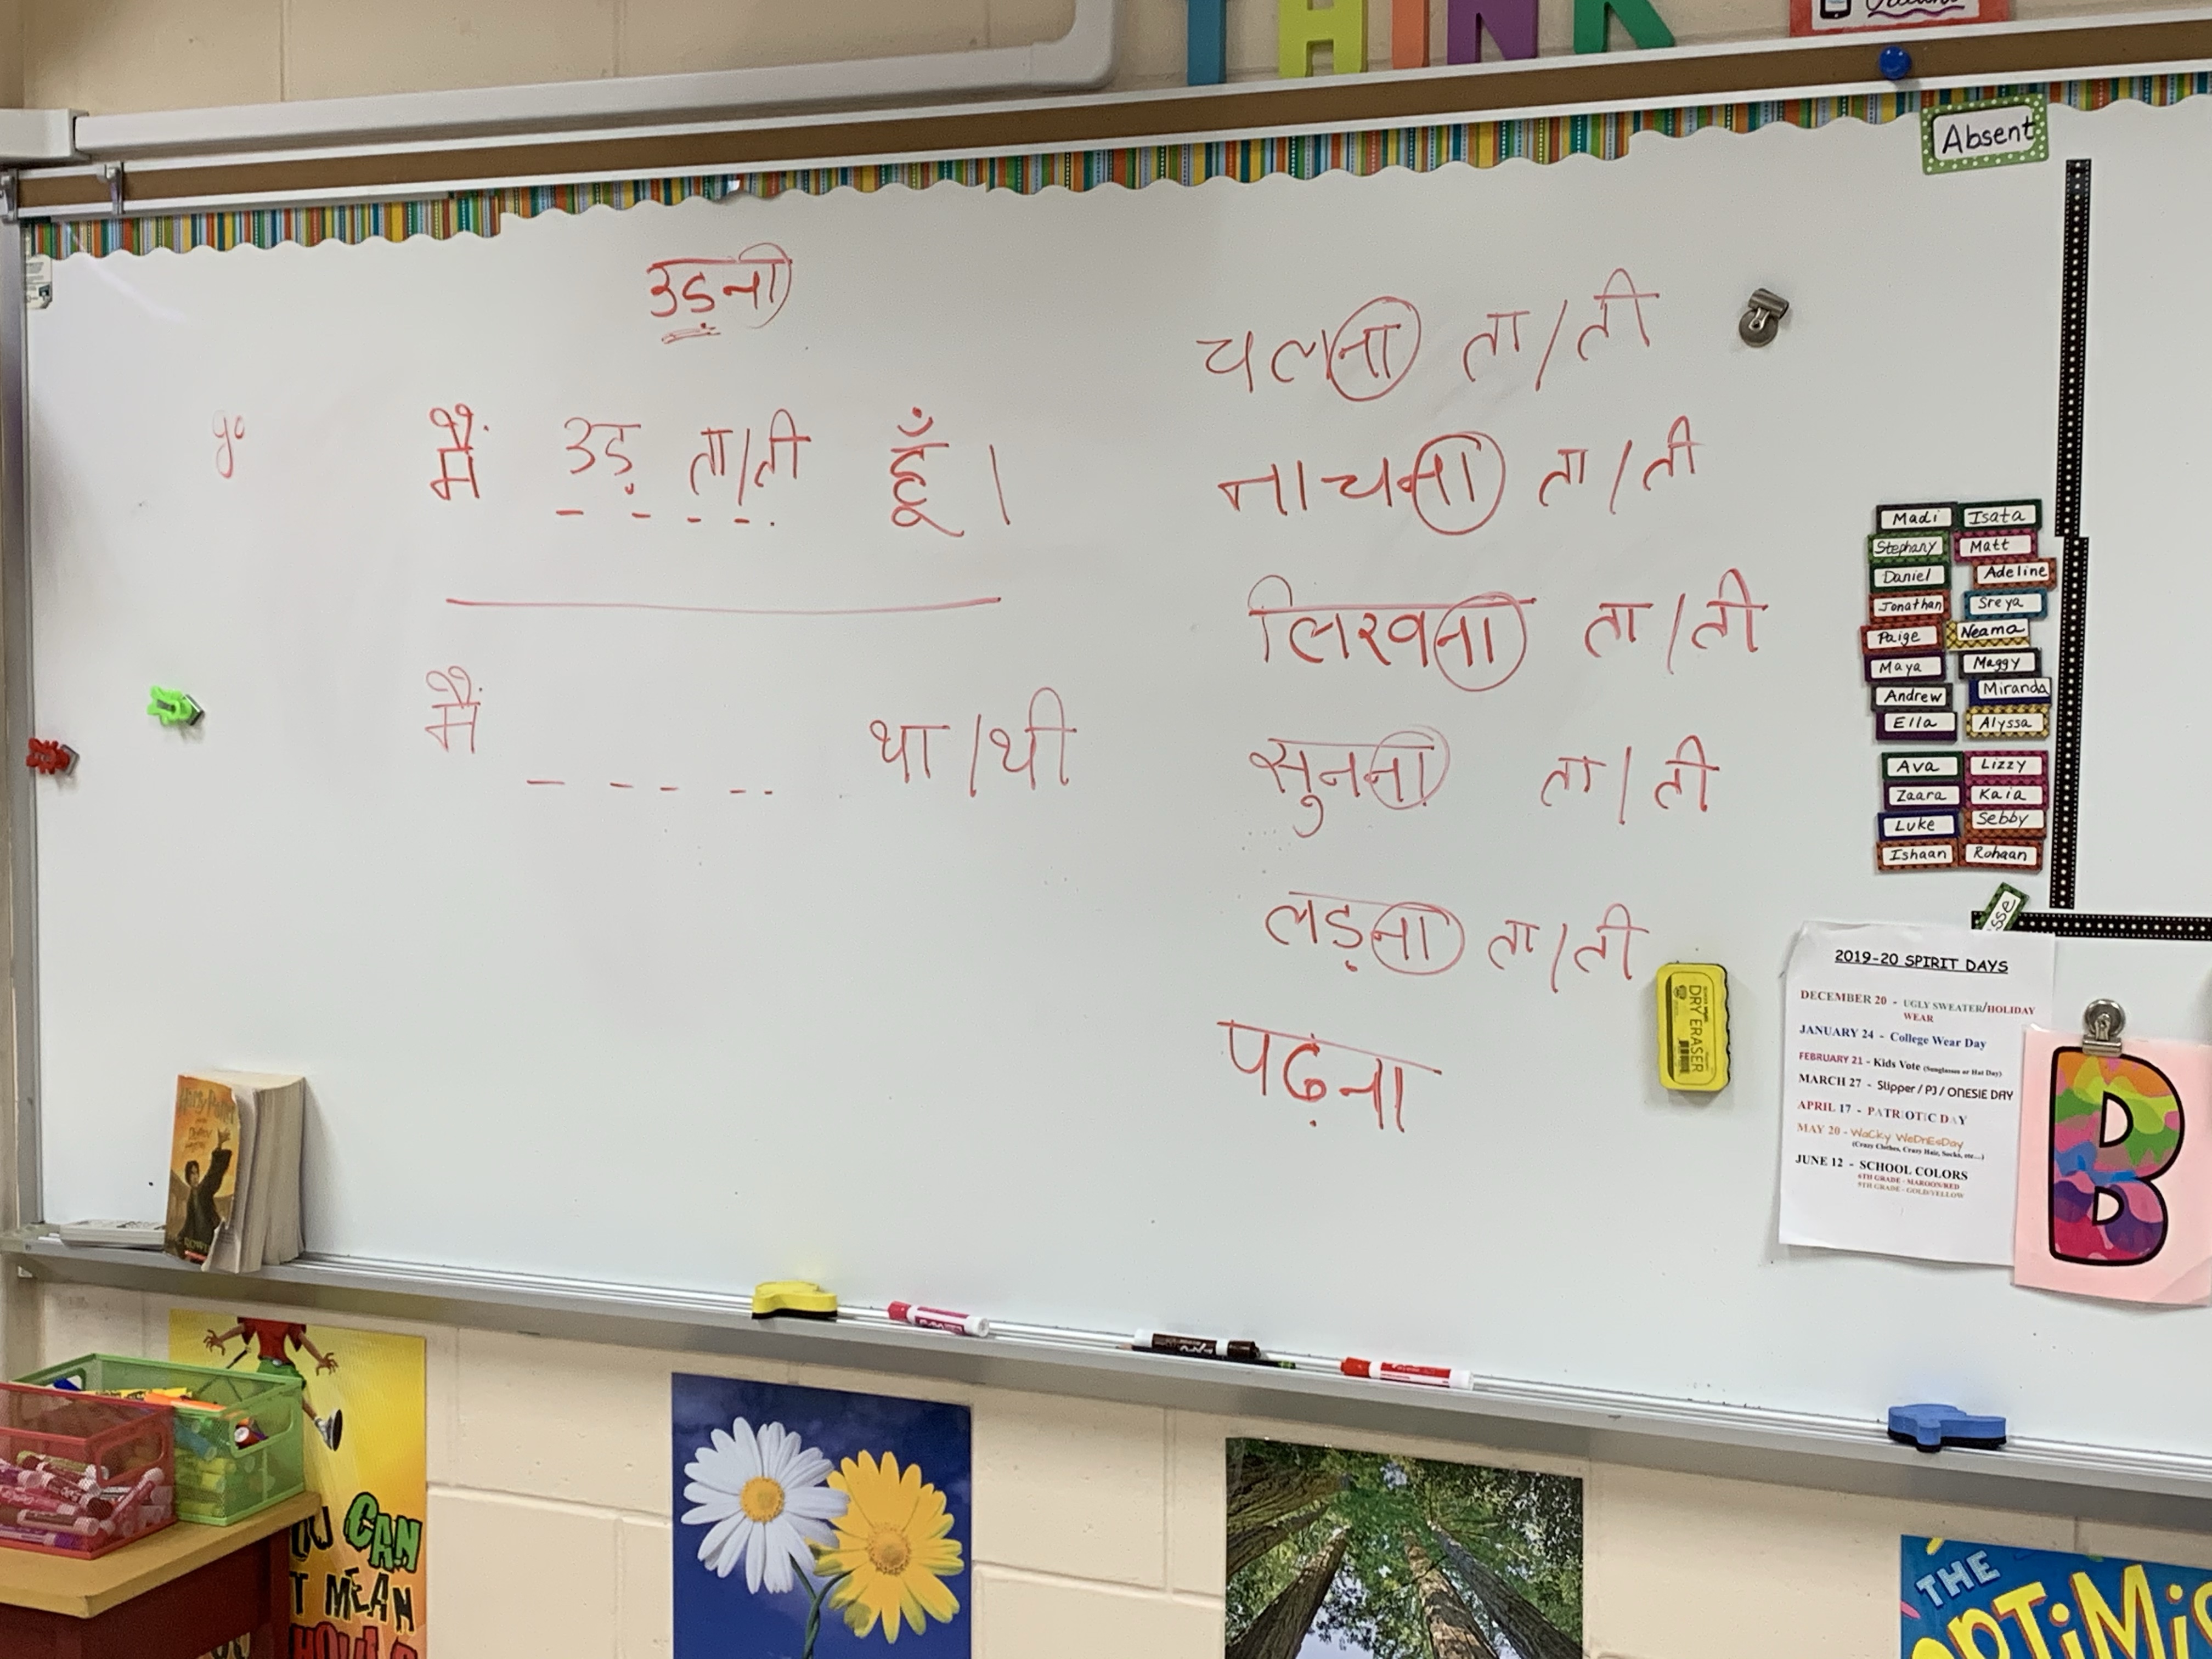 THINK
Absent
उड़ना
go
मैं उड़ ता/ती हूँ।
मैं _ _ _ _ _ था/थी
चलना ता/ती
नाचना ता/ती
लिखना ता/ती
सुनना ता/ती
लड़ना ता/ती
पढ़ना
Madi Isata
Stephany Matt
Daniel Adeline
Jonathan Sreya
Paige Neama
Maya Maggy
Andrew Miranda
Ella Alyssa
Ava Lizzy
Zaara Kaia
Luke Sebby
Ishaan Rohaan
DRY ERASER
2019-20 SPIRIT DAYS
DECEMBER 20 - UGLY SWEATER/HOLIDAY
WEAR
JANUARY 24 - College Wear Day
FEBRUARY 21 - Kids Vote (Sunglasses or Hat Day)
MARCH 27 - Slipper / PJ / ONESIE DAY
APRIL 17 - PATRIOTIC DAY
MAY 20 - WaCky WeDnEsDay
(Crazy Clothes, Crazy Hair, Socks, etc...)
JUNE 12 - SCHOOL COLORS
6TH GRADE - MAROON/RED
5TH GRADE - GOLD/YELLOW
B
Harry Potter
CAN
MEAN
THE